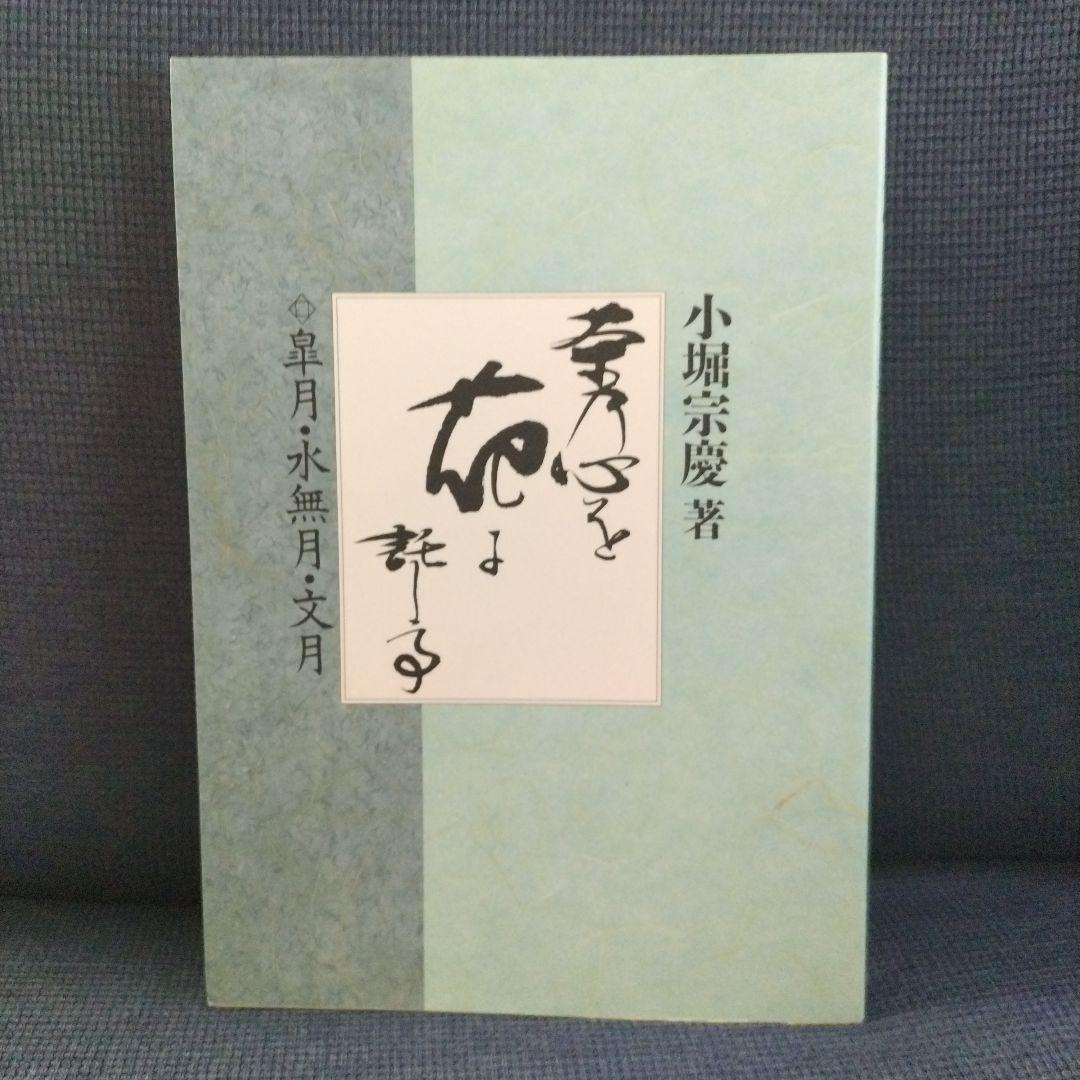 小堀宗慶 著
茶乃心を
花に
託して
皐月・水無月・文月